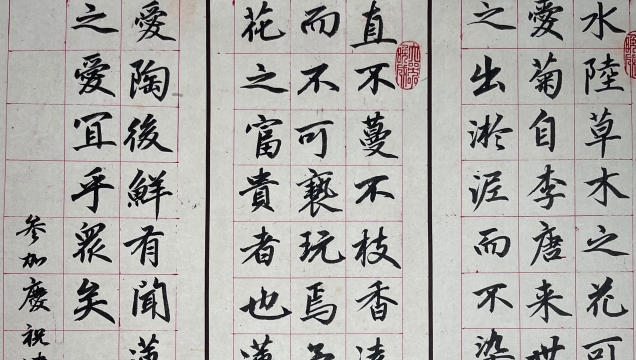 水陸草木之花可
愛菊自李唐来世
之出淤泥而不染
直不蔓不枝香
而不可褻玩焉
花之富貴者也蓮
愛陶後鮮有聞蓮
之愛冝乎衆矣
参加慶祝